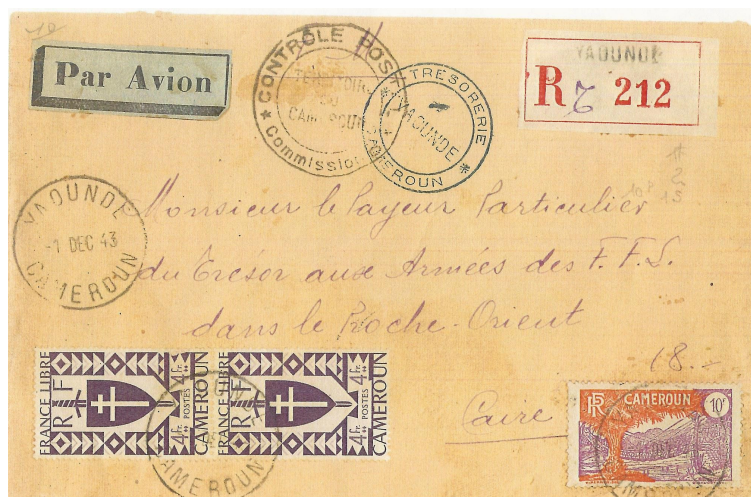 Par Avion
CONTRÔLE POST
TERRITOIR
DU
CAMEROUN
Commission
TRESORERIE
YAOUNDE
CAMEROUN
YAOUNDE
R 212
YAOUNDE
-1 DEC 43
CAMEROUN
Monsieur le Payeur Particulier
du Trésor aux Armées des F.F.L.
dans le Proche-Orient
18.-
Caire
FRANCE LIBRE
RF
4Fr. POSTES 4Fr.
CAMEROUN
FRANCE LIBRE
RF
4Fr. POSTES 4Fr.
CAMEROUN
CAMEROUN
RF CAMEROUN 10F